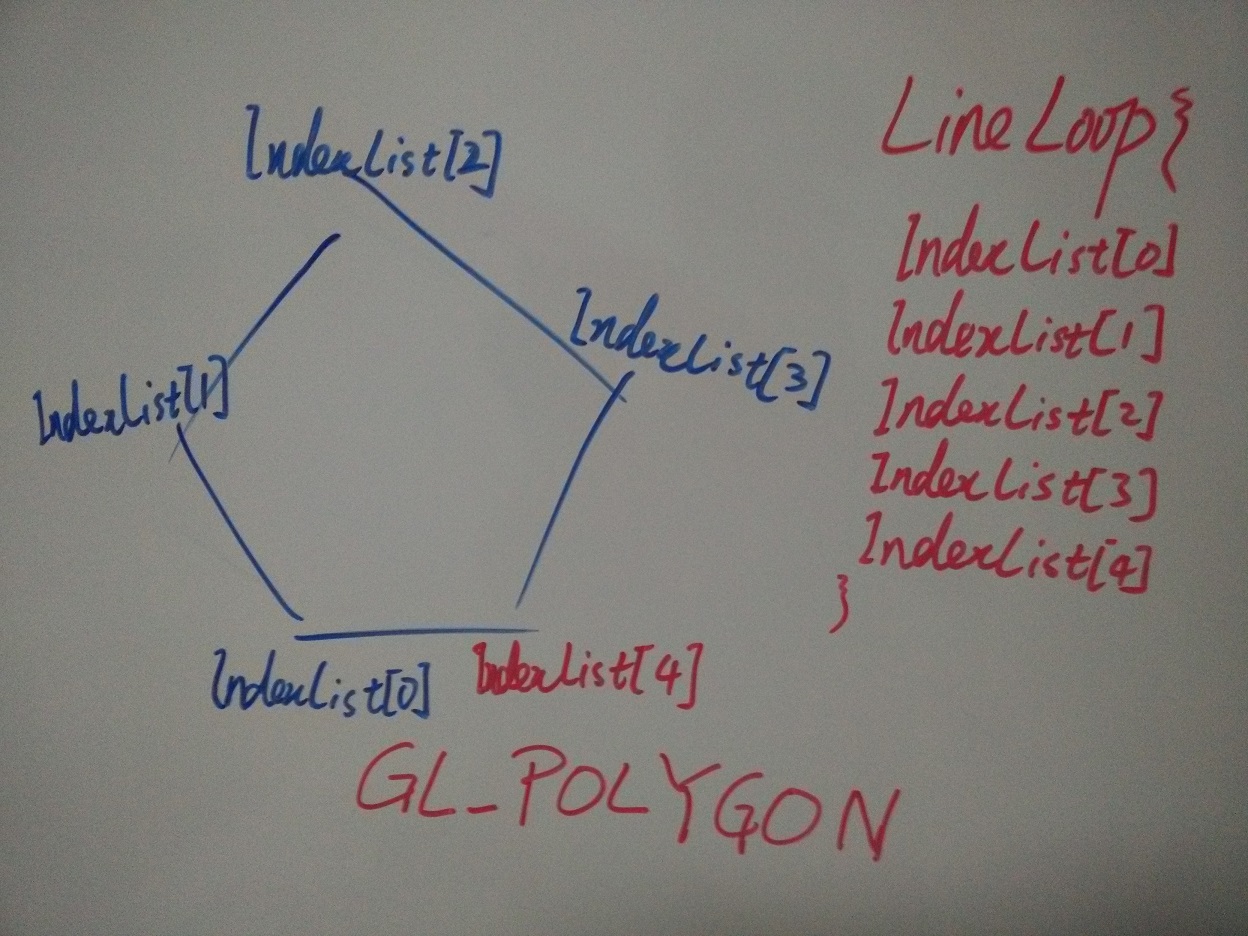 IndexList[2]
IndexList[3]
IndexList[1]
IndexList[0]
IndexList[4]
GL_POLYGON
LineLoop{
IndexList[0]
IndexList[1]
IndexList[2]
IndexList[3]
IndexList[4]
}